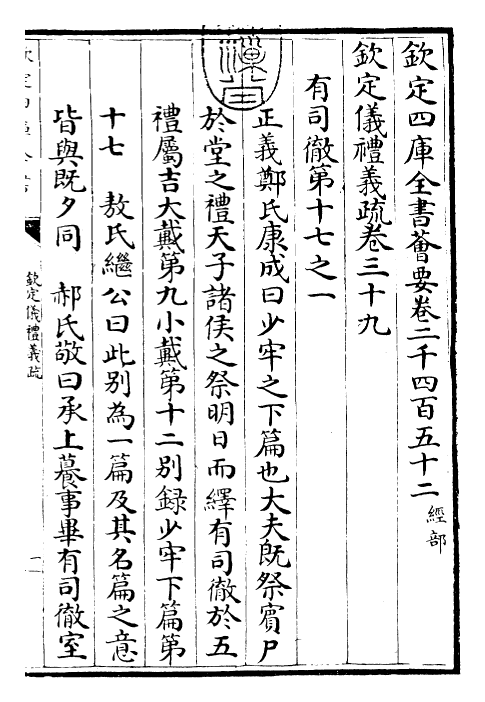 欽定四庫全書薈要卷二千四百五十二 經部
欽定儀禮義疏卷三十九
有司徹第十七之一
正義鄭氏康成曰少牢之下篇也大夫既祭賓尸
於堂之禮天子諸侯之祭明日而繹有司徹於五
禮屬吉大戴第九小戴第十二別錄少牢下篇第
十七 敖氏繼公曰此別為一篇及其名篇之意
皆與既夕同 郝氏敬曰承上養事畢有司徹室
欽定儀禮義疏
一